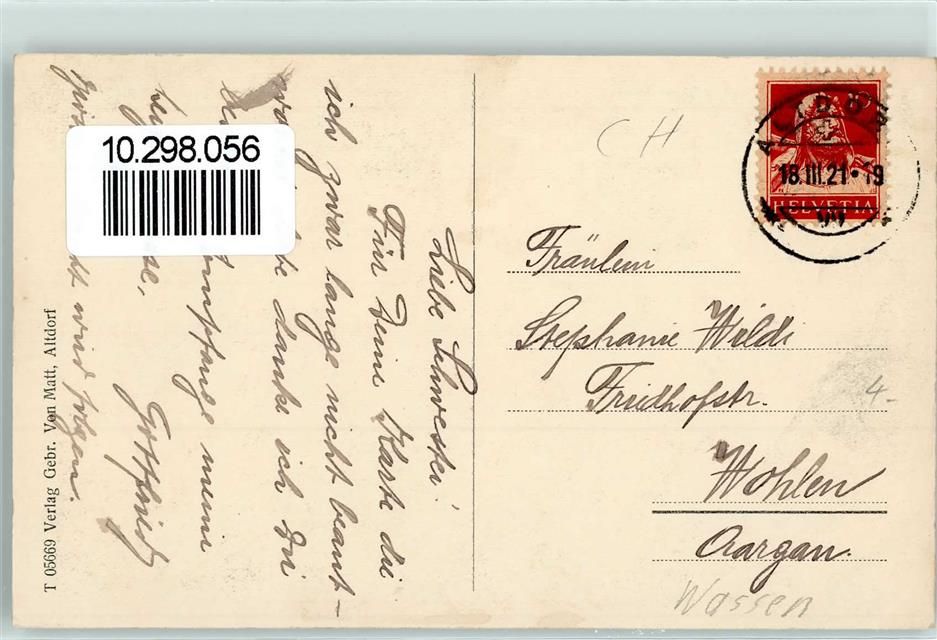 10.298.056
Liebe Schwester!
Für Deine Karte die
ich zwar lange nicht beant-
danke ich Dir
Empfange meine
Gottfried
wird folgen.
T 05669 Verlag Gebr. Von Matt, Altdorf
CH
ALTDORF
18.III.21
HELVETIA
Fräulein
Stephanie Wildi
Friedhofstr.
4-
Wohlen
Aargau.
Wassen